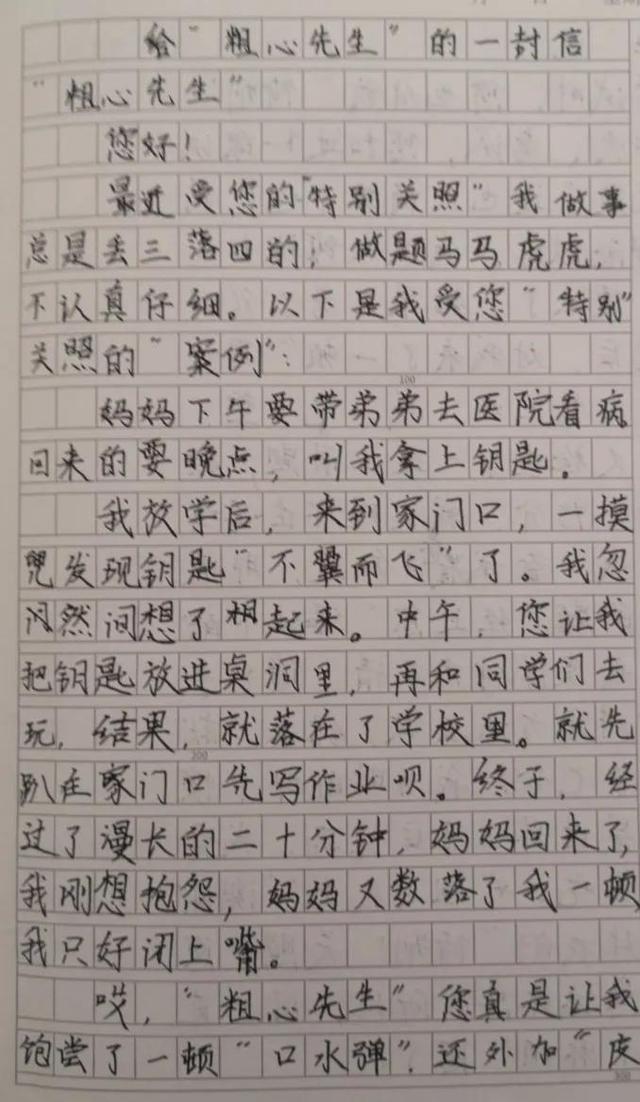 给“粗心先生”的一封信
“粗心先生”
您好!
最近受您的“特别关照”我做事
总是丢三落四的,做题马马虎虎,
不认真仔细。以下是我受您“特别”
关照的“案例”:
妈妈下午要带弟弟去医院看病
回来的要晚点,叫我拿上钥匙.
我放学后,来到家门口,一摸
兜发现钥匙“不翼而飞”了。我忽
然间想了起来。中午,您让我
把钥匙放进桌洞里,再和同学们去
玩,结果,就落在了学校里。就先
趴在家门口先写作业呗。终于,经
过了漫长的二十分钟,妈妈回来了,
我刚想抱怨,妈妈又数落了我一顿
我只好闭上嘴。
哎,“粗心先生”您真是让我
饱尝了一顿“口水弹”.还外加“皮
100
200
300